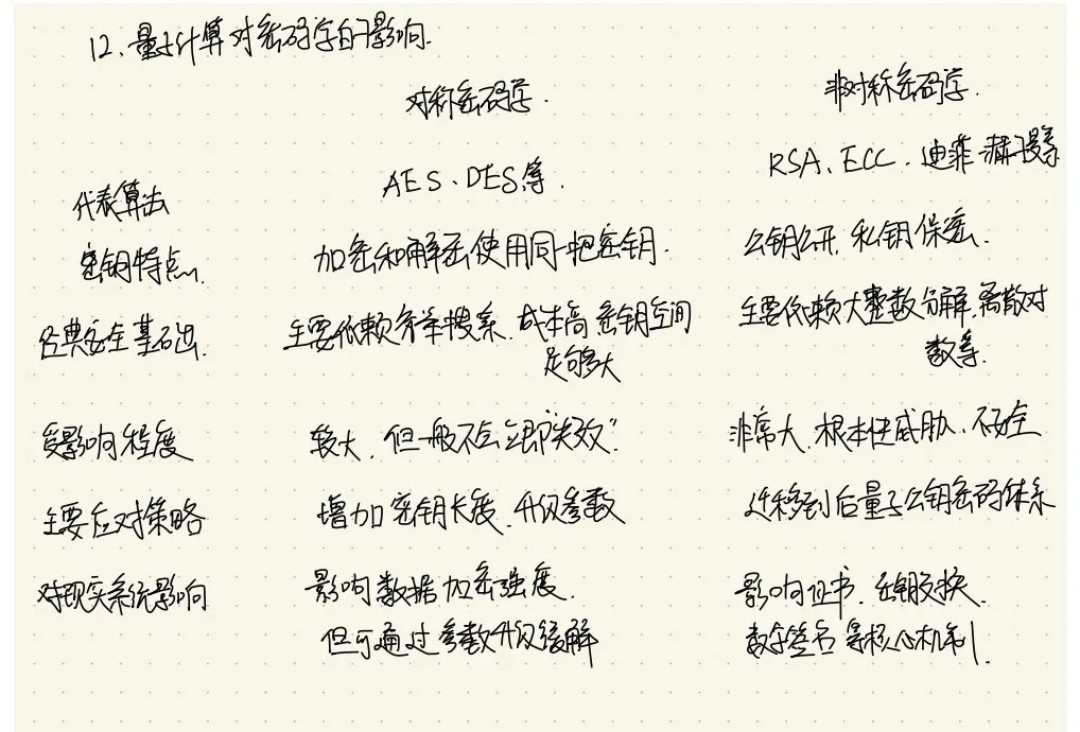 12、量子计算对密码学的影响.
对称密码学. 非对称密码学.
代表算法 AES、DES等. RSA、ECC、迪菲-赫尔曼等
密钥特点. 加密和解密使用同一把密钥. 公钥公开, 私钥保密.
经典安全基础. 主要依赖穷举搜索. 成本高 密钥空间足够大 主要依赖大整数分解, 离散对数等.
受影响程度 较大, 但一般不会立即"失效" 非常大, 根本性威胁、不安全
主要应对策略 增加密钥长度、升级参数 迁移到后量子公钥密码体系
对现实系统影响 影响数据加密强度. 影响证书、密钥交换、
但可通过参数升级缓解 数字签名等核心机制.